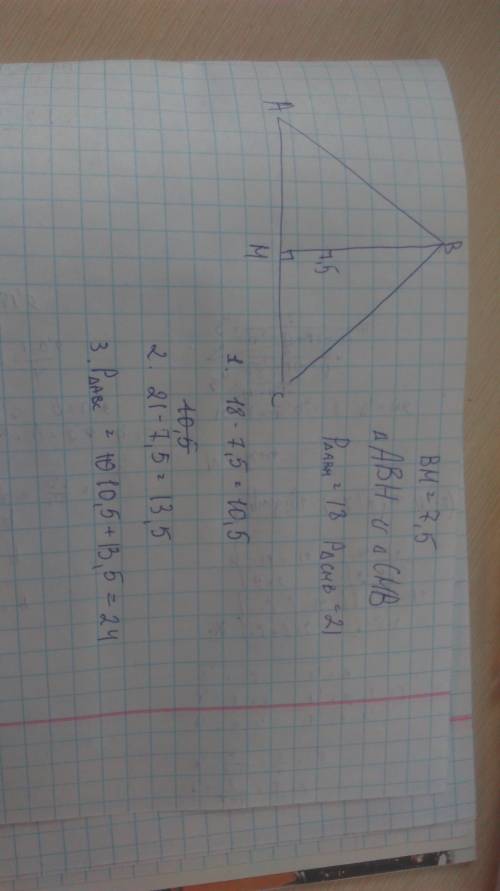 B
A
M
C
7,5
BM = 7,5
△ABH и △CMB
P△ABM = 18 P△CMB = 21
1. 18 - 7,5 = 10,5
10,5
2. 21 - 7,5 = 13,5
3. P△ABC = 10 10,5 + 13,5 = 24